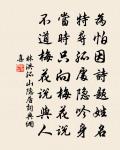 為怕因詩題姓名
特尋孤嶼隱吟身
當時只向梅花說
不道梅花說與人
林洪孤山隱居詞典網
集